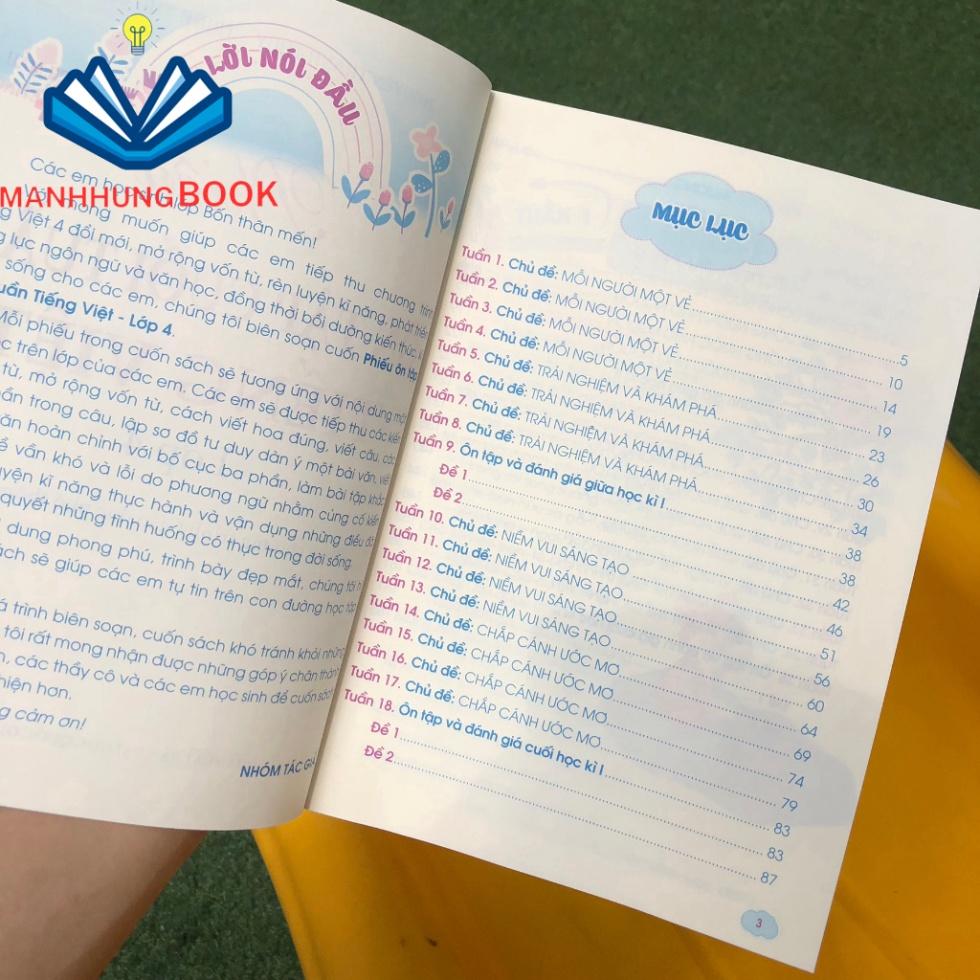 LỜI NÓI ĐẦU
MANHHUNGBOOK
Các em học sinh lớp Bốn thân mến!
mong muốn giúp các em tiếp thu chương trình
Việt 4 đổi mới, mở rộng vốn từ, rèn luyện kĩ năng, phát triển
lực ngôn ngữ và văn học, đồng thời bồi dưỡng kiến thức,
sống cho các em, chúng tôi biên soạn cuốn Phiếu ôn tập
tuần Tiếng Việt - Lớp 4.
Mỗi phiếu trong cuốn sách sẽ tương ứng với nội dung
trên lớp của các em. Các em sẽ được tiếp thu các kiến
từ, mở rộng vốn từ, cách viết hoa đúng, viết câu, các
trong câu, lập sơ đồ tư duy dàn ý một bài văn, viết
văn hoàn chỉnh với bố cục ba phần, làm bài tập khắc
vần khó và lỗi do phương ngữ nhằm củng cố kiến
kĩ năng thực hành và vận dụng những điều đã
quyết những tình huống có thực trong đời sống.
dung phong phú, trình bày đẹp mắt, chúng tôi
sách sẽ giúp các em tự tin trên con đường học tập
trình biên soạn, cuốn sách khó tránh khỏi những
tôi rất mong nhận được những góp ý chân thành
các thầy cô và các em học sinh để cuốn sách
thiện hơn.
cảm ơn!
NHÓM TÁC GIẢ
MỤC LỤC
Tuần 1. Chủ đề: MỖI NGƯỜI MỘT VẺ 5
Tuần 2. Chủ đề: MỖI NGƯỜI MỘT VẺ 10
Tuần 3. Chủ đề: MỖI NGƯỜI MỘT VẺ 14
Tuần 4. Chủ đề: MỖI NGƯỜI MỘT VẺ 19
Tuần 5. Chủ đề: TRẢI NGHIỆM VÀ KHÁM PHÁ 23
Tuần 6. Chủ đề: TRẢI NGHIỆM VÀ KHÁM PHÁ 26
Tuần 7. Chủ đề: TRẢI NGHIỆM VÀ KHÁM PHÁ 30
Tuần 8. Chủ đề: TRẢI NGHIỆM VÀ KHÁM PHÁ 34
Tuần 9. Ôn tập và đánh giá giữa học kì I 38
Đề 1 38
Đề 2 42
Tuần 10. Chủ đề: NIỀM VUI SÁNG TẠO 46
Tuần 11. Chủ đề: NIỀM VUI SÁNG TẠO 51
Tuần 12. Chủ đề: NIỀM VUI SÁNG TẠO 56
Tuần 13. Chủ đề: NIỀM VUI SÁNG TẠO 60
Tuần 14. Chủ đề: CHẮP CÁNH ƯỚC MƠ 64
Tuần 15. Chủ đề: CHẮP CÁNH ƯỚC MƠ 69
Tuần 16. Chủ đề: CHẮP CÁNH ƯỚC MƠ 74
Tuần 17. Chủ đề: CHẮP CÁNH ƯỚC MƠ 79
Tuần 18. Ôn tập và đánh giá cuối học kì I 83
Đề 1 83
Đề 2 87
3